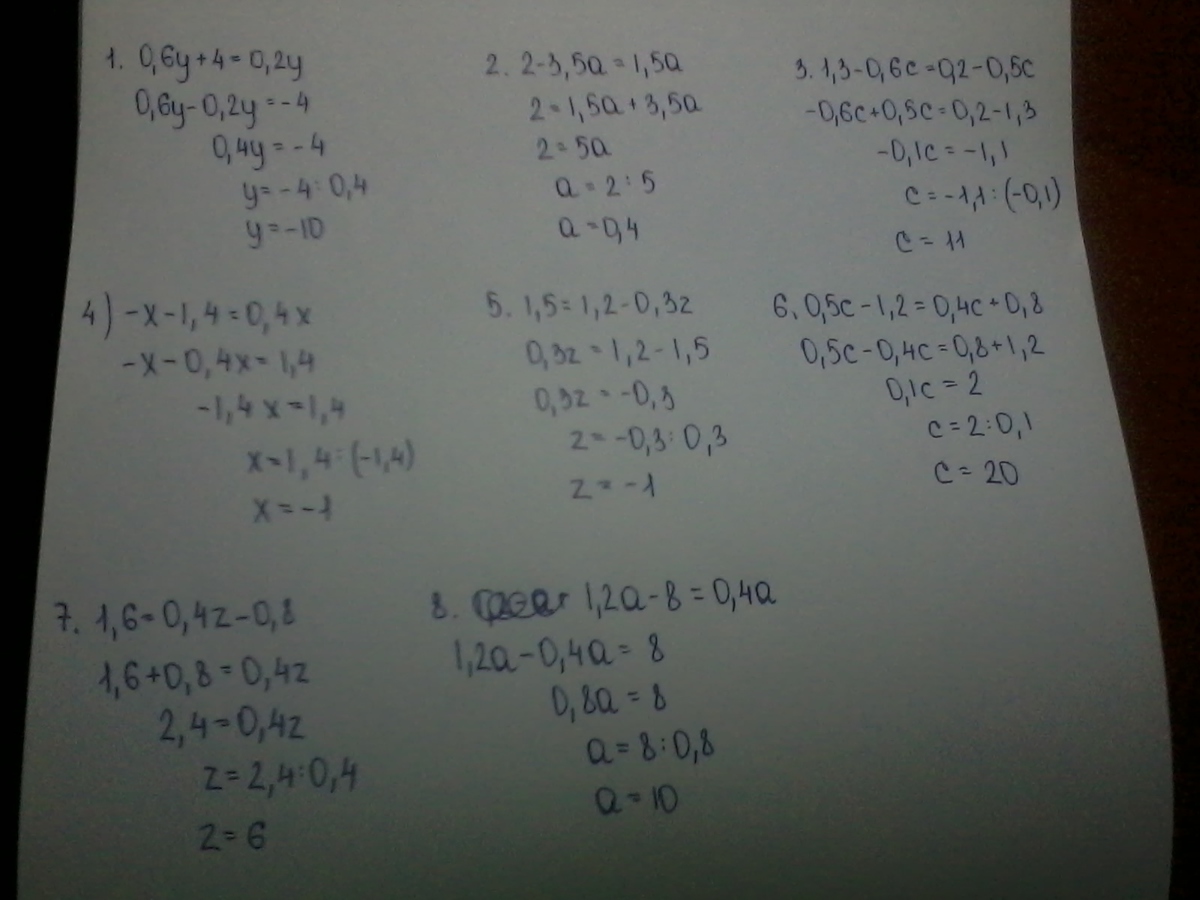 1. 0,6y+4=0,2y
0,6y-0,2y=-4
0,4y=-4
y=-4:0,4
y=-10
2. 2-3,5a=1,5a
2=1,5a+3,5a
2=5a
a=2:5
a=0,4
3. 1,3-0,6c=0,2-0,5c
-0,6c+0,5c=0,2-1,3
-0,1c=-1,1
c=-1,1:(-0,1)
c=11
4) -x-1,4=0,4x
-x-0,4x=1,4
-1,4x=1,4
x=1,4:(-1,4)
x=-1
5. 1,5=1,2-0,3z
0,3z=1,2-1,5
0,3z=-0,3
z=-0,3:0,3
z=-1
6. 0,5c-1,2=0,4c+0,8
0,5c-0,4c=0,8+1,2
0,1c=2
c=2:0,1
c=20
7. 1,6=0,4z-0,8
1,6+0,8=0,4z
2,4=0,4z
z=2,4:0,4
z=6
8. 1,2a-8=0,4a
1,2a-0,4a=8
0,8a=8
a=8:0,8
a=10